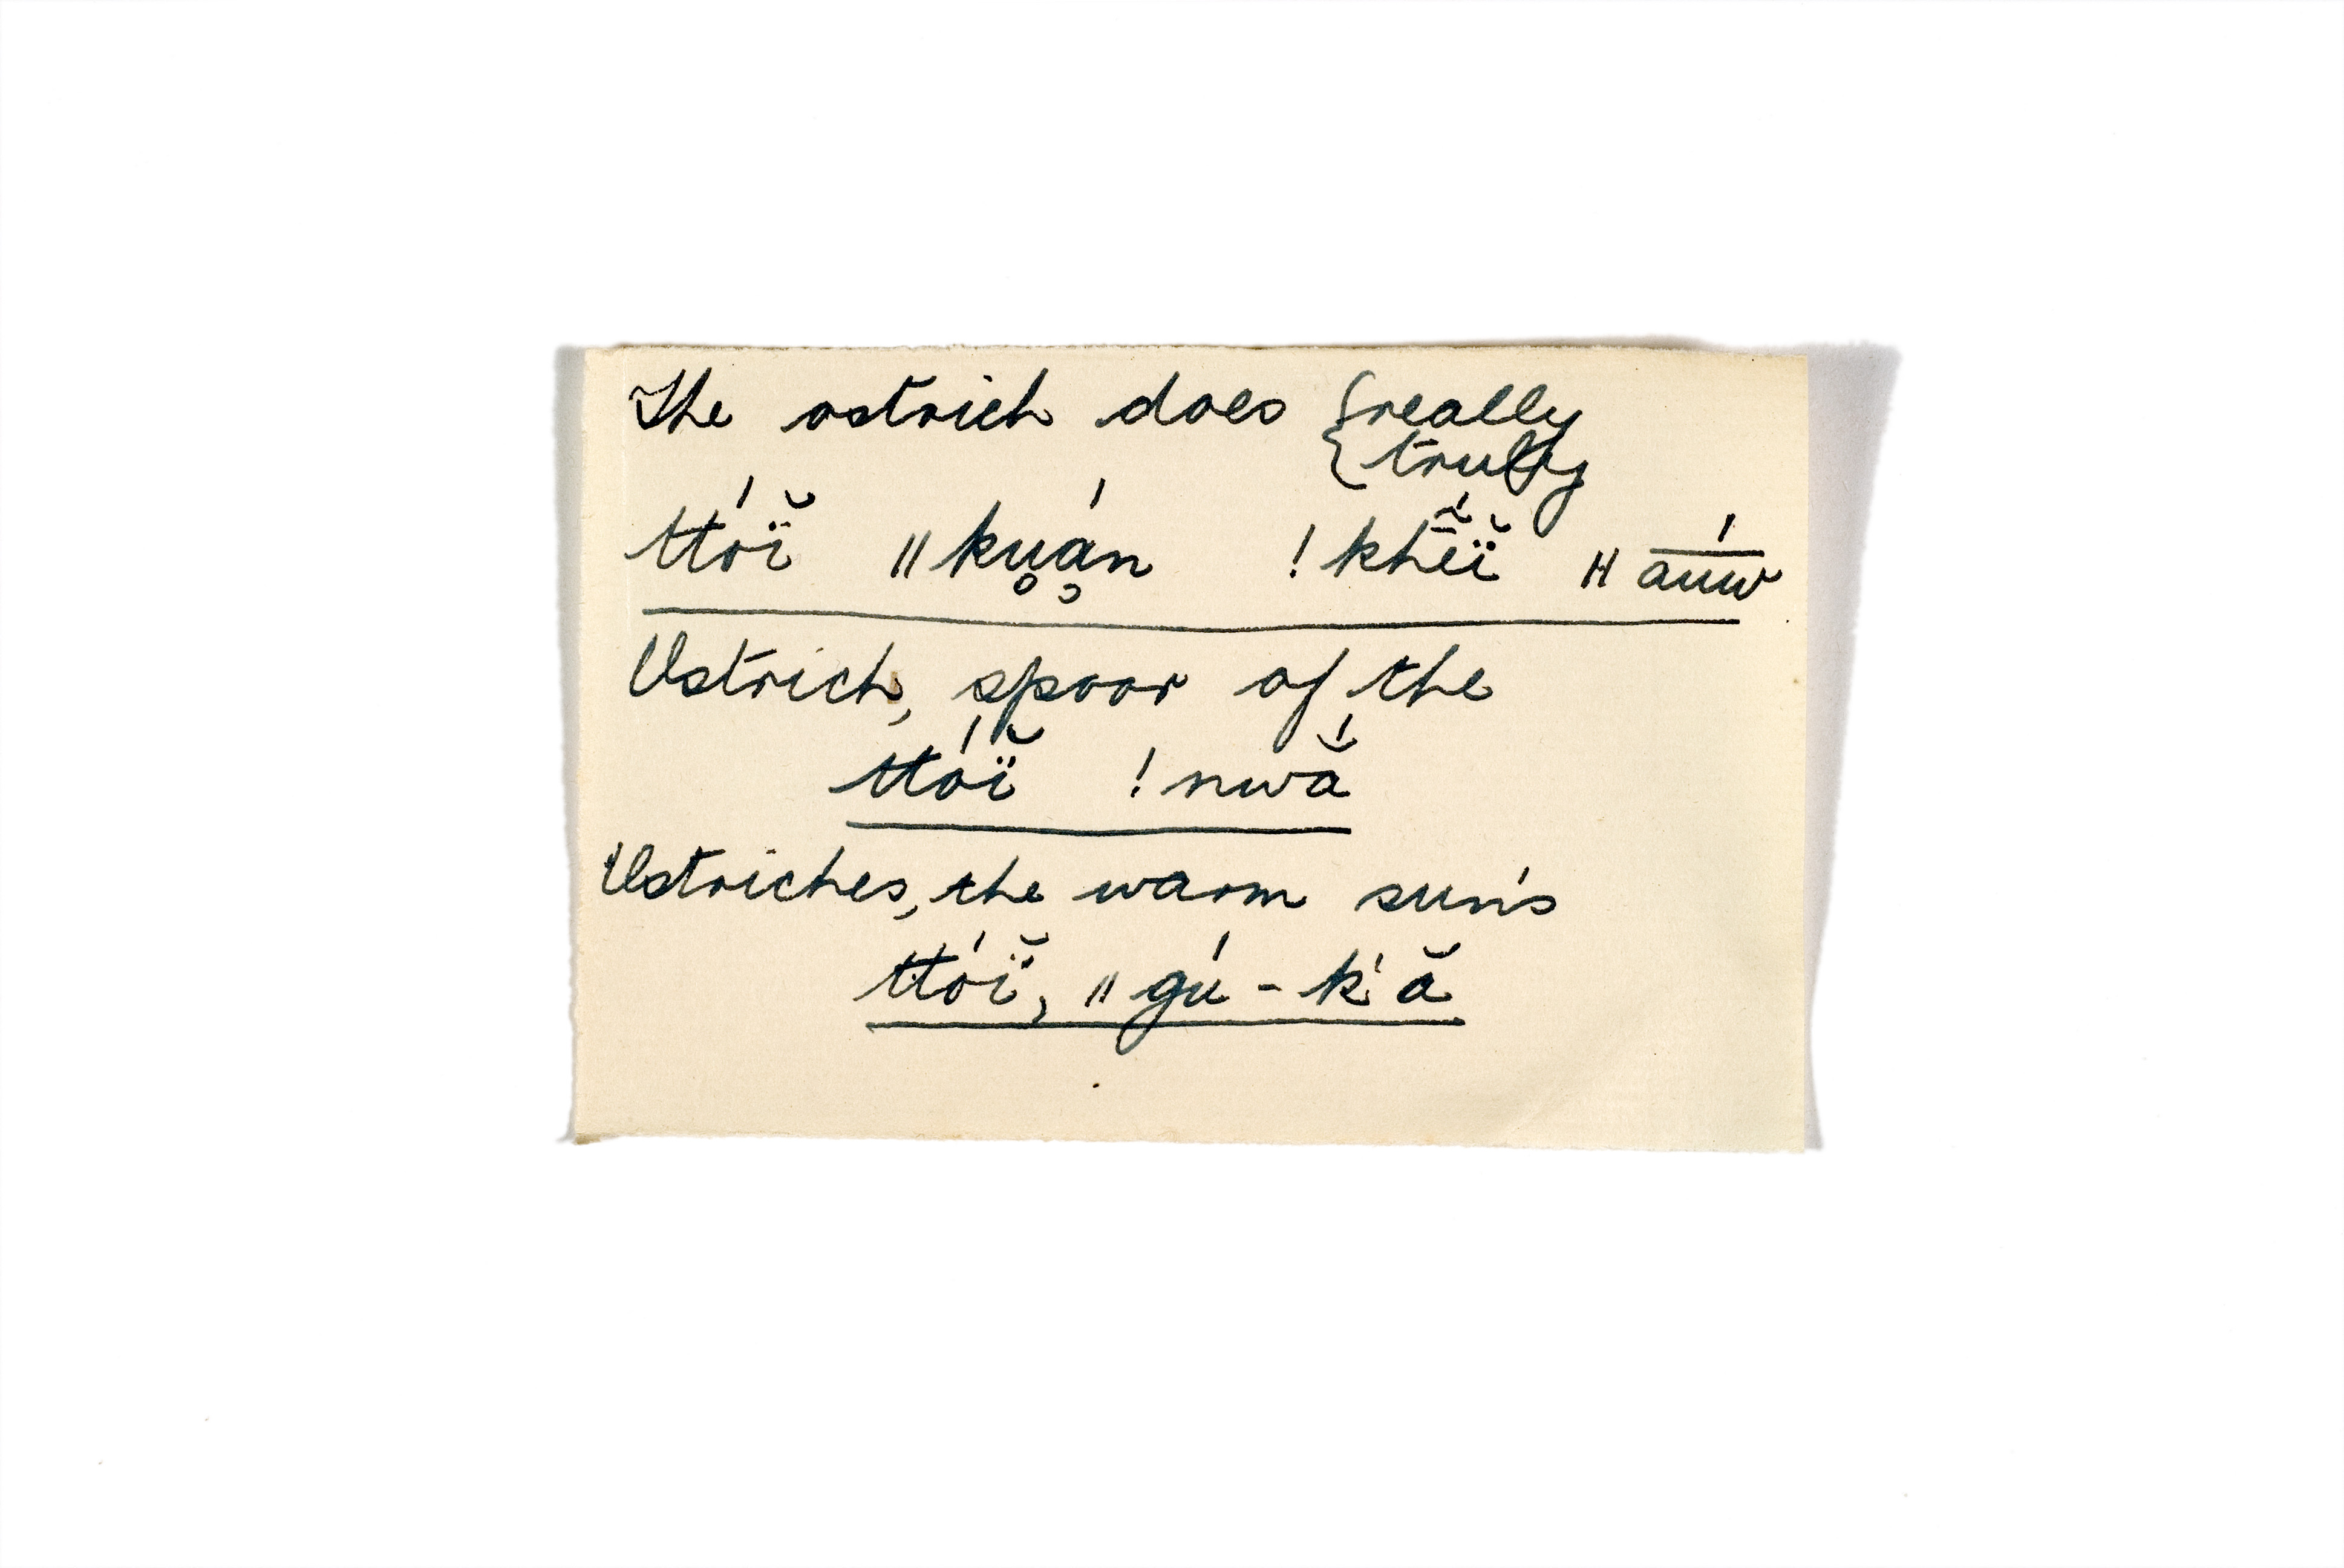 The ostrich does {really
{truly
ttóï̆ ǁku̥á̜n !khḗ̃ï̆ ǁa͞úw
Ostrich, spoor of the
ttóï̆ !nwā̆́
Ostriches, the warm sun's
ttóï̆, ǁgú-k'ă